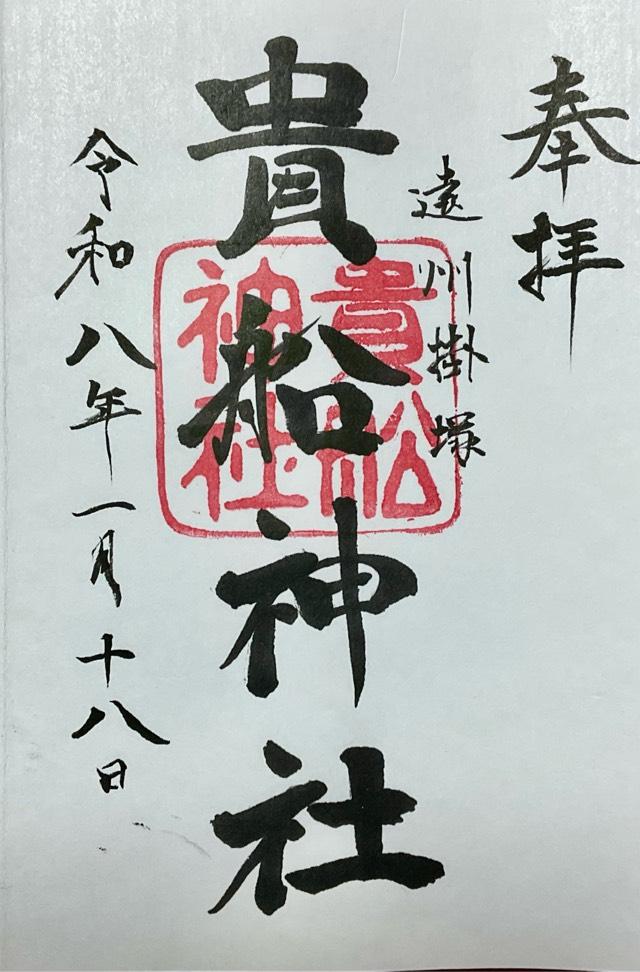 奉拝
遠州掛塚
貴船神社
貴船
神社
令和八年一月十八日